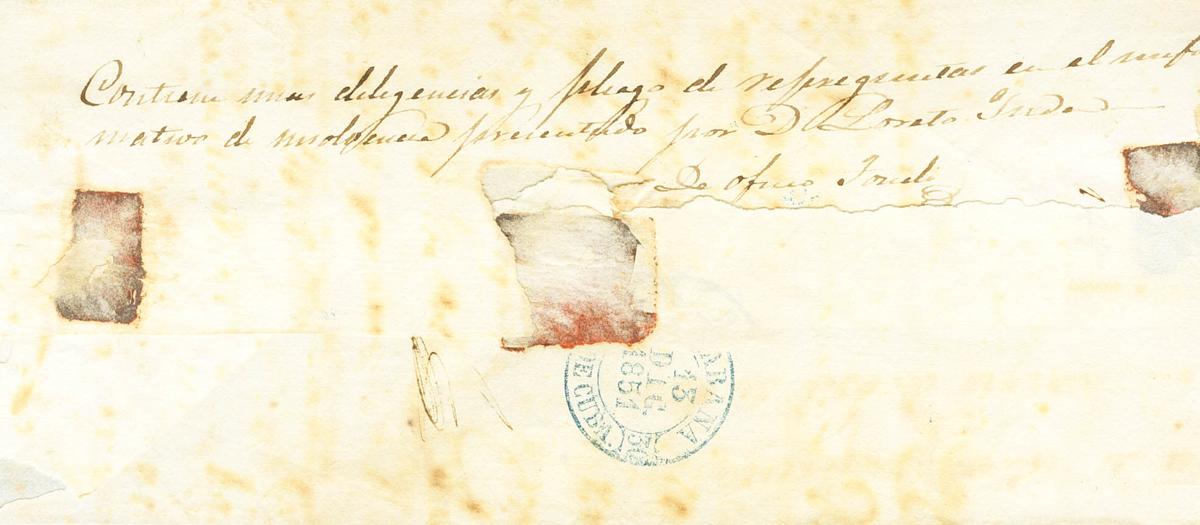 Contiene unas diligencias y pliego de repreguntas en el infor
mativo de insolvencia presentado por D Loreto
De oficio
13
DIC
1851